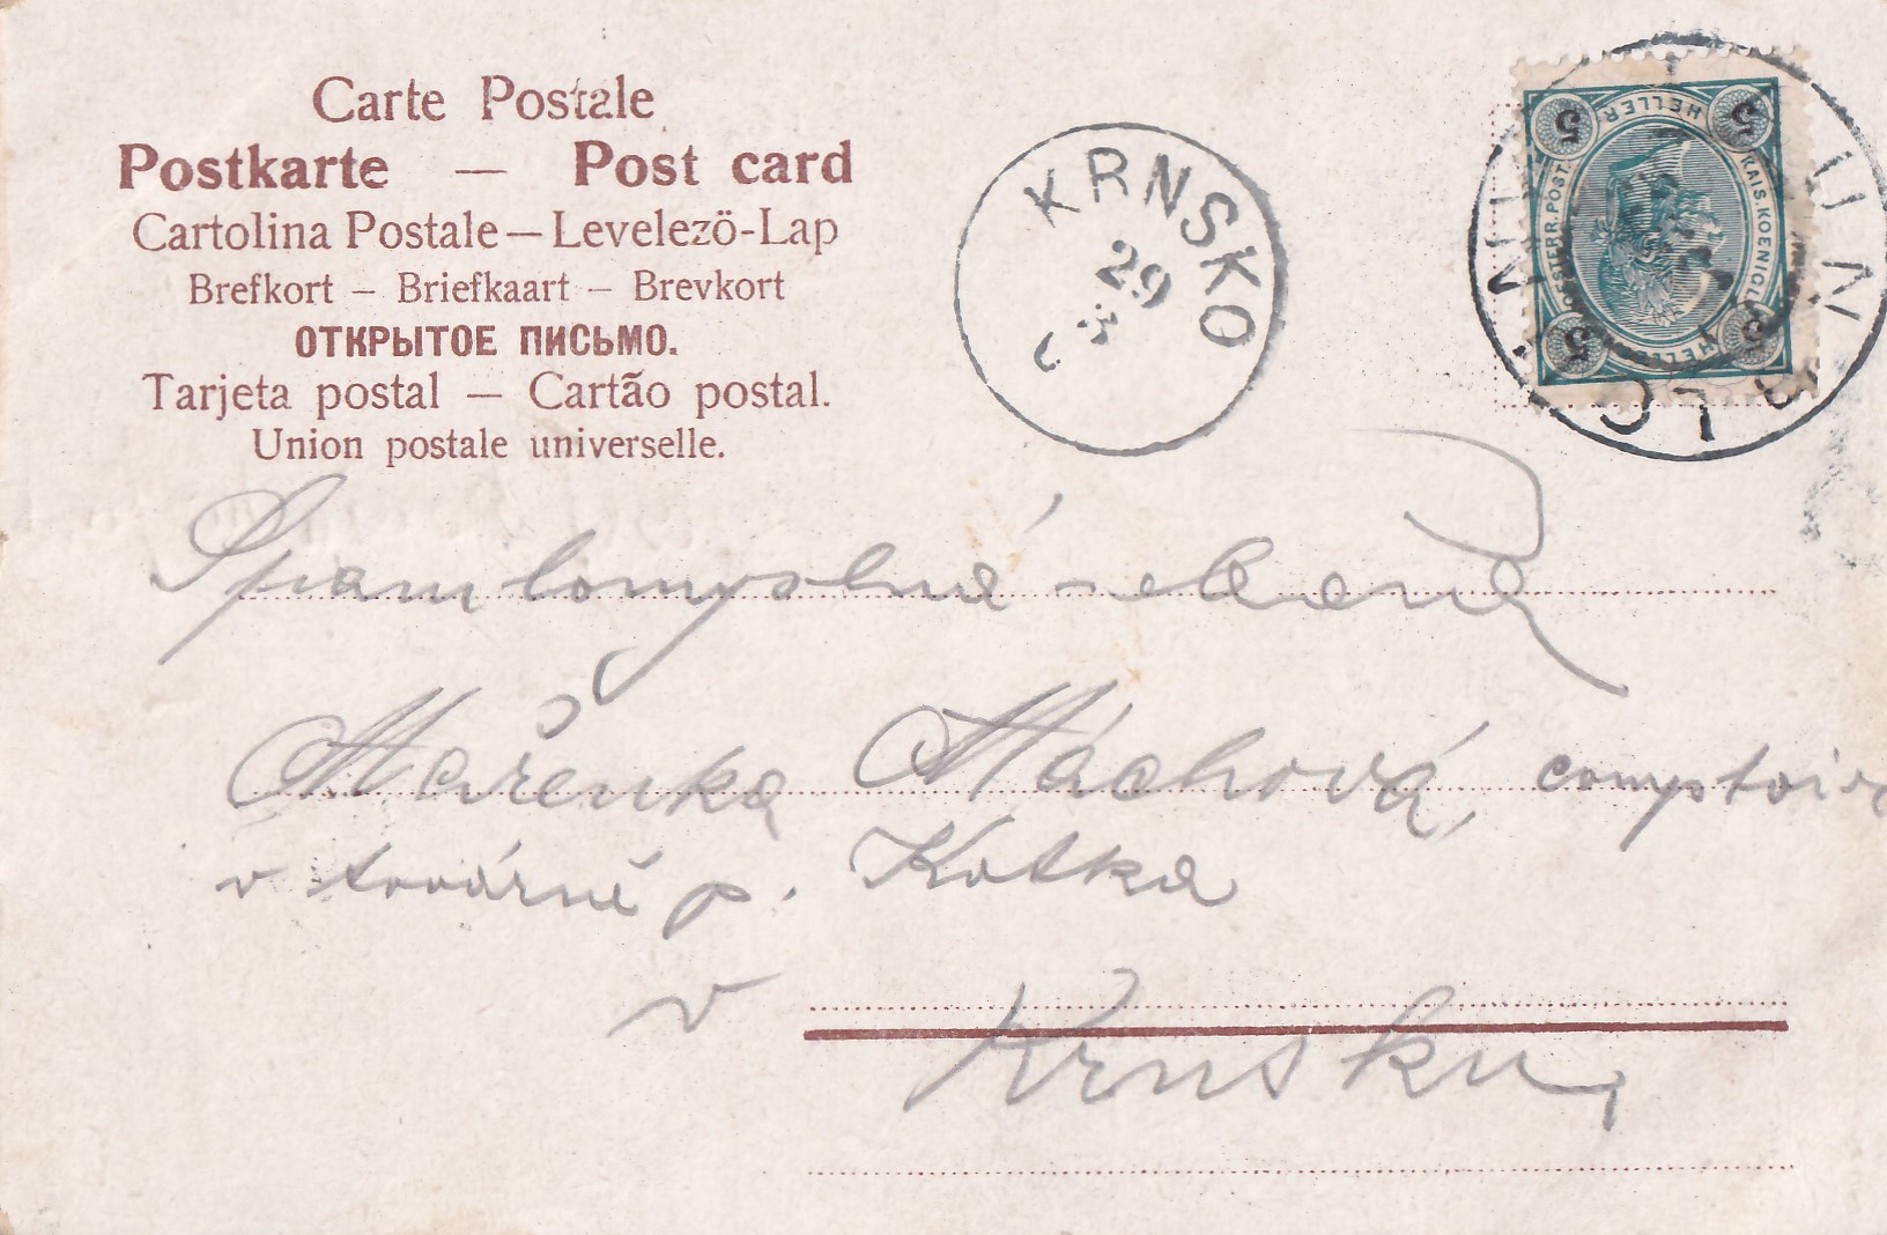 Carte Postale
Postkarte — Post card
Cartolina Postale — Levelező-Lap
Brefkort – Briefkaart – Brevkort
ОТКРЫТОЕ ПИСЬМО.
Tarjeta postal — Cartão postal.
Union postale universelle.
KRNSKO
29
5 HELLER 5
KAIS. KOENIGL.
OESTERR. POST.
5 HELLER 5
Mařenka Máchová, comptoir
v továrně p. Kotka
v Krnsku,